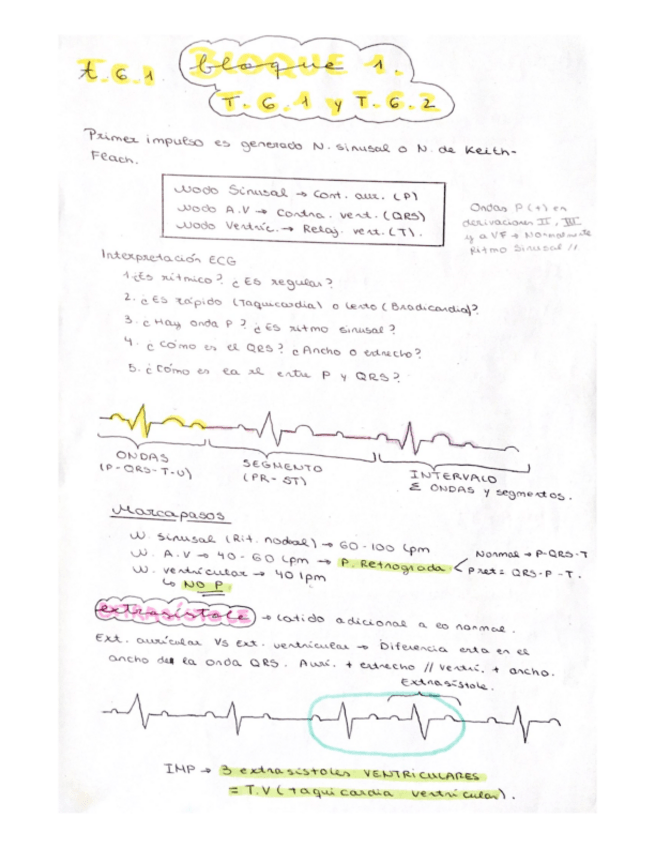 t.6.1. bloque 1.
T. 6.1 y T. 6.2
Primer impulso es generado N. sinusal o N. de Keith-
Flach.
Nodo Sinusal → Cont. aur. (P)
Nodo A.V → Contra. vent. (QRS)
Nodo Ventric. → Relaj. vent. (T).
Ondas P (+) en
derivaciones II, III
y a VF → Normalmente
Ritmo Sinusal //
Interpretación ECG
1. ¿Es rítmico? ¿Es regular?
2. ¿Es rápido (Taquicardia) o lento (Bradicardia)?
3. ¿Hay onda P? ¿Es ritmo sinusal?
4. ¿Cómo es el QRS? ¿Ancho o estrecho?
5. ¿Cómo es la rl entre P y QRS?
ONDAS
(P-QRS-T-U)
SEGMENTO
(PR - ST)
INTERVALO
Σ ONDAS y segmentos.
Marcapasos
N. sinusal (Rit. nodal) → 60-100 lpm
N. A.V → 40-60 lpm → P. Retrógrada
Normal → P-QRS-T
P ret = QRS-P-T.
N. ventricular → 40 lpm
↳ NO P.
extrasístole → latido adicional a lo normal.
Ext. auricular Vs ext. ventricular → Diferencia esta en el
ancho de la onda QRS. Auri. + estrecho // ventri. + ancho.
Extrasístole.
IMP → 3 extrasístoles VENTRICULARES
= T.V (taquicardia ventricular).